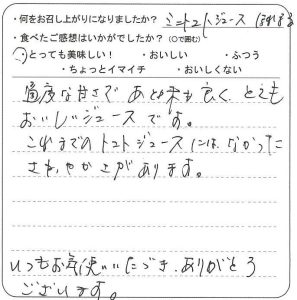 ・何をお召し上がりになりましたか？ ミニトマトジュース
・食べたご感想はいかがでしたか？（○で囲む）
・とっても美味しい！ ・おいしい ・ふつう
・ちょっとイマイチ ・おいしくない
適度な甘さで あと味も良く、とても
おいしいジュースです。
これまでのトマトジュースには なかった
さわやかさがあります。
いつもお気使いいただき、ありがとう
ございます。